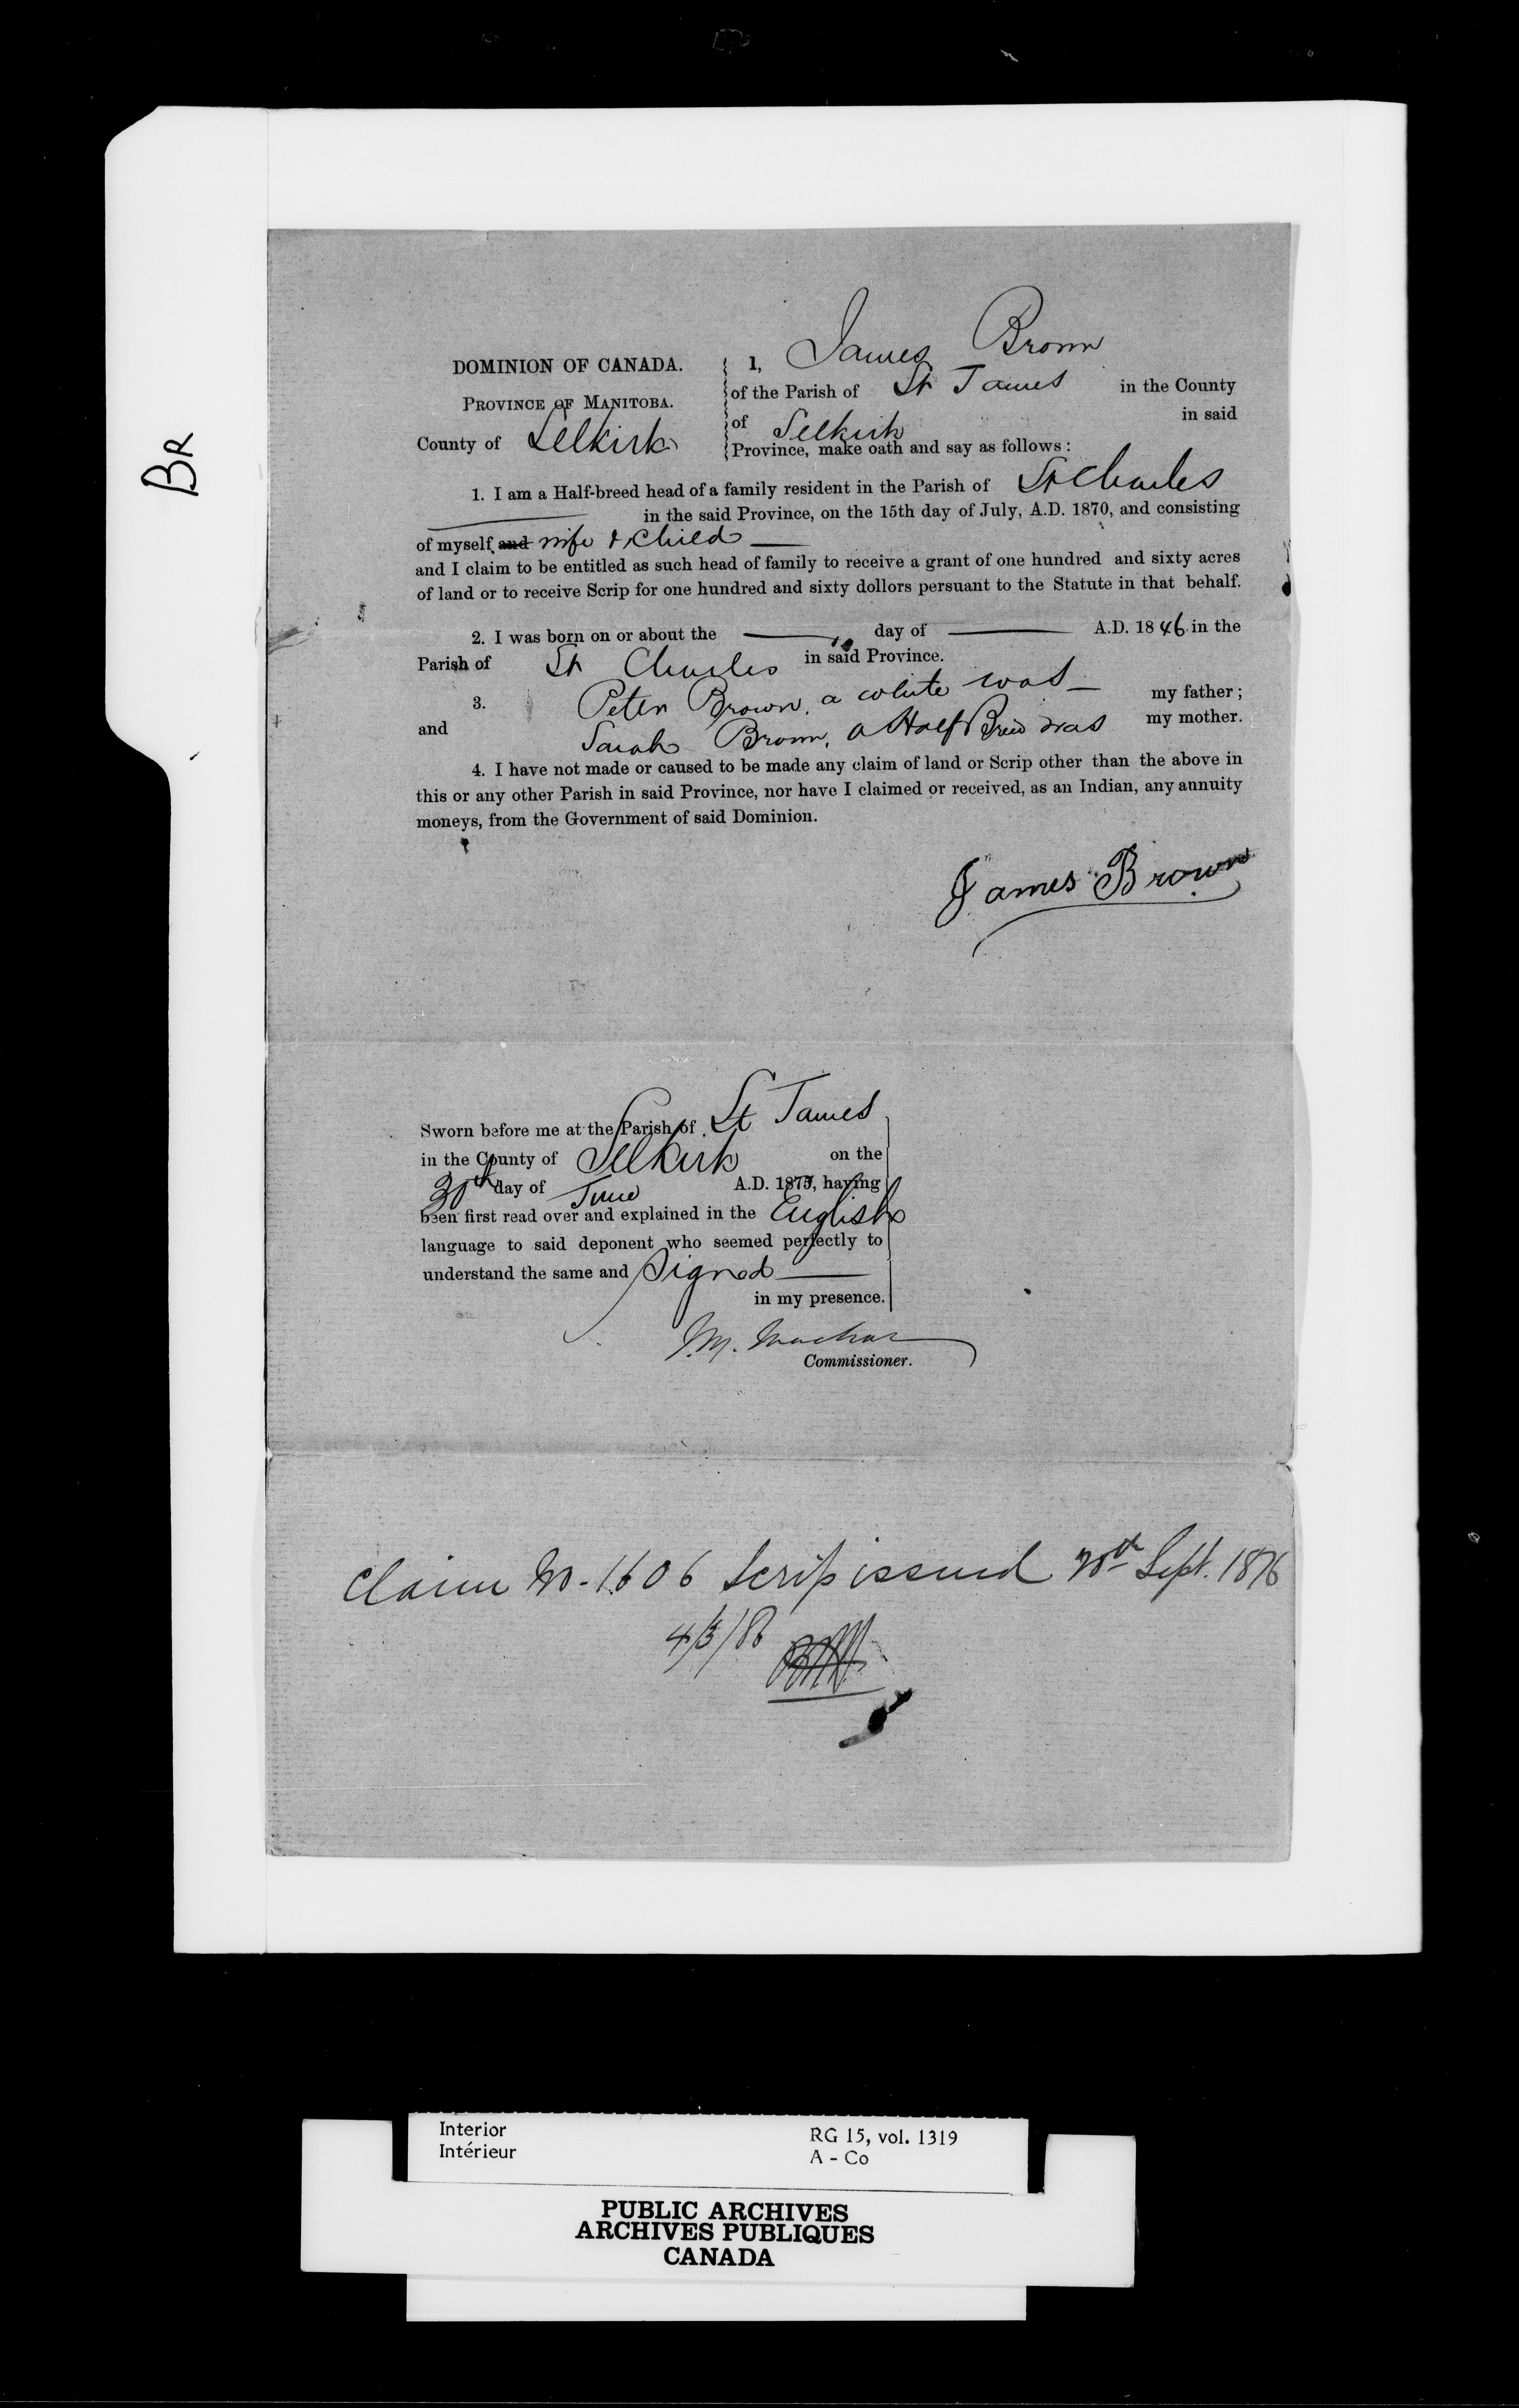 BR
DOMINION OF CANADA.
PROVINCE OF MANITOBA.
County of Selkirk
1, James Brown
of the Parish of St James in the County
of Selkirk in said
Province, make oath and say as follows :
1. I am a Half-breed head of a family resident in the Parish of St Charles
in the said Province, on the 15th day of July, A.D. 1870, and consisting
of myself and wife & child
and I claim to be entitled as such head of family to receive a grant of one hundred and sixty acres
of land or to receive Scrip for one hundred and sixty dollors persuant to the Statute in that behalf.
2. I was born on or about the day of A.D. 1846 in the
Parish of St Charles in said Province.
3. Peter Brown, a white was my father ;
and Sarah Brown, a Half Breed was my mother.
4. I have not made or caused to be made any claim of land or Scrip other than the above in
this or any other Parish in said Province, nor have I claimed or received, as an Indian, any annuity
moneys, from the Government of said Dominion.
James Brown
Sworn before me at the Parish of St James
in the County of Selkirk on the
30th day of June A.D. 1875, having
been first read over and explained in the English
language to said deponent who seemed perfectly to
understand the same and signed
in my presence.
J.M. Machar
Commissioner.
Claim No. 1606 Scrip issued 20th Sept. 1876
Interior
Intérieur
RG 15, vol. 1319
A - Co
PUBLIC ARCHIVES
ARCHIVES PUBLIQUES
CANADA